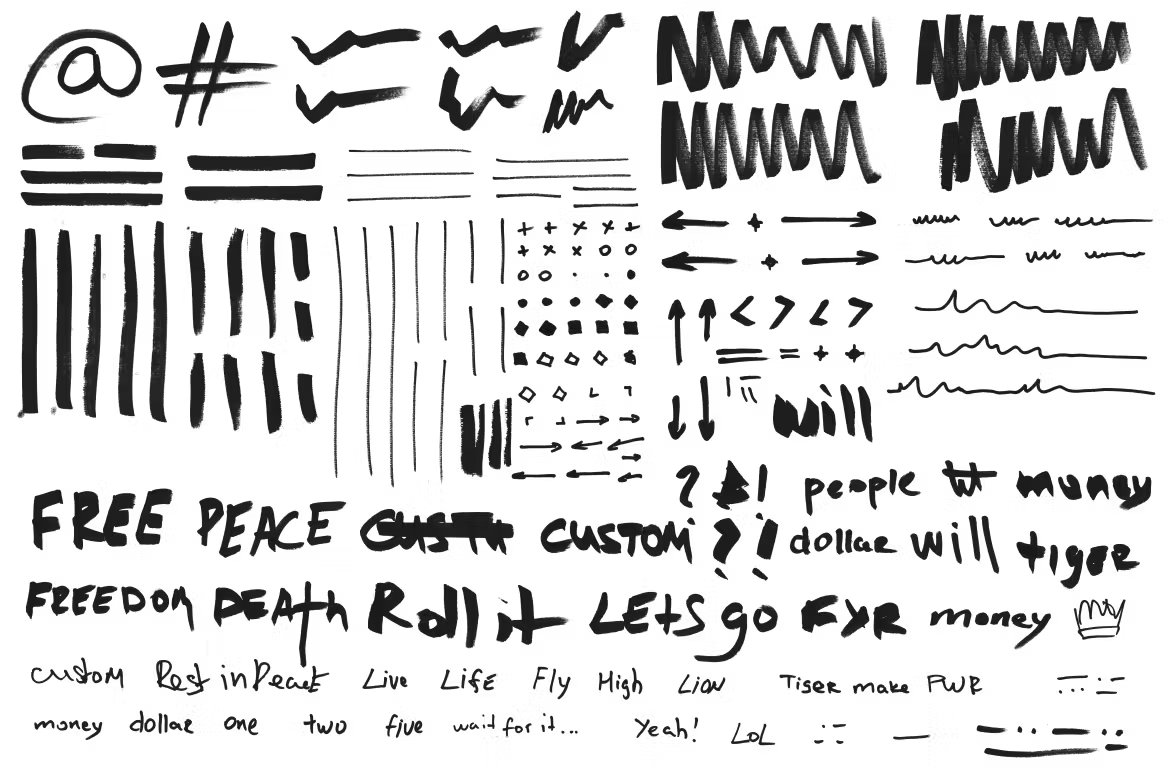 @ #
will
? ! people tt money
FREE PEACE CUSTOM ?! dollar will tiger
FREEDOM DEATH Roll it LETS go FYR money
custom Rest in Peace Live LifE Fly High Lion Tiger make PWR
money dollar one two five wait for it... Yeah! LoL